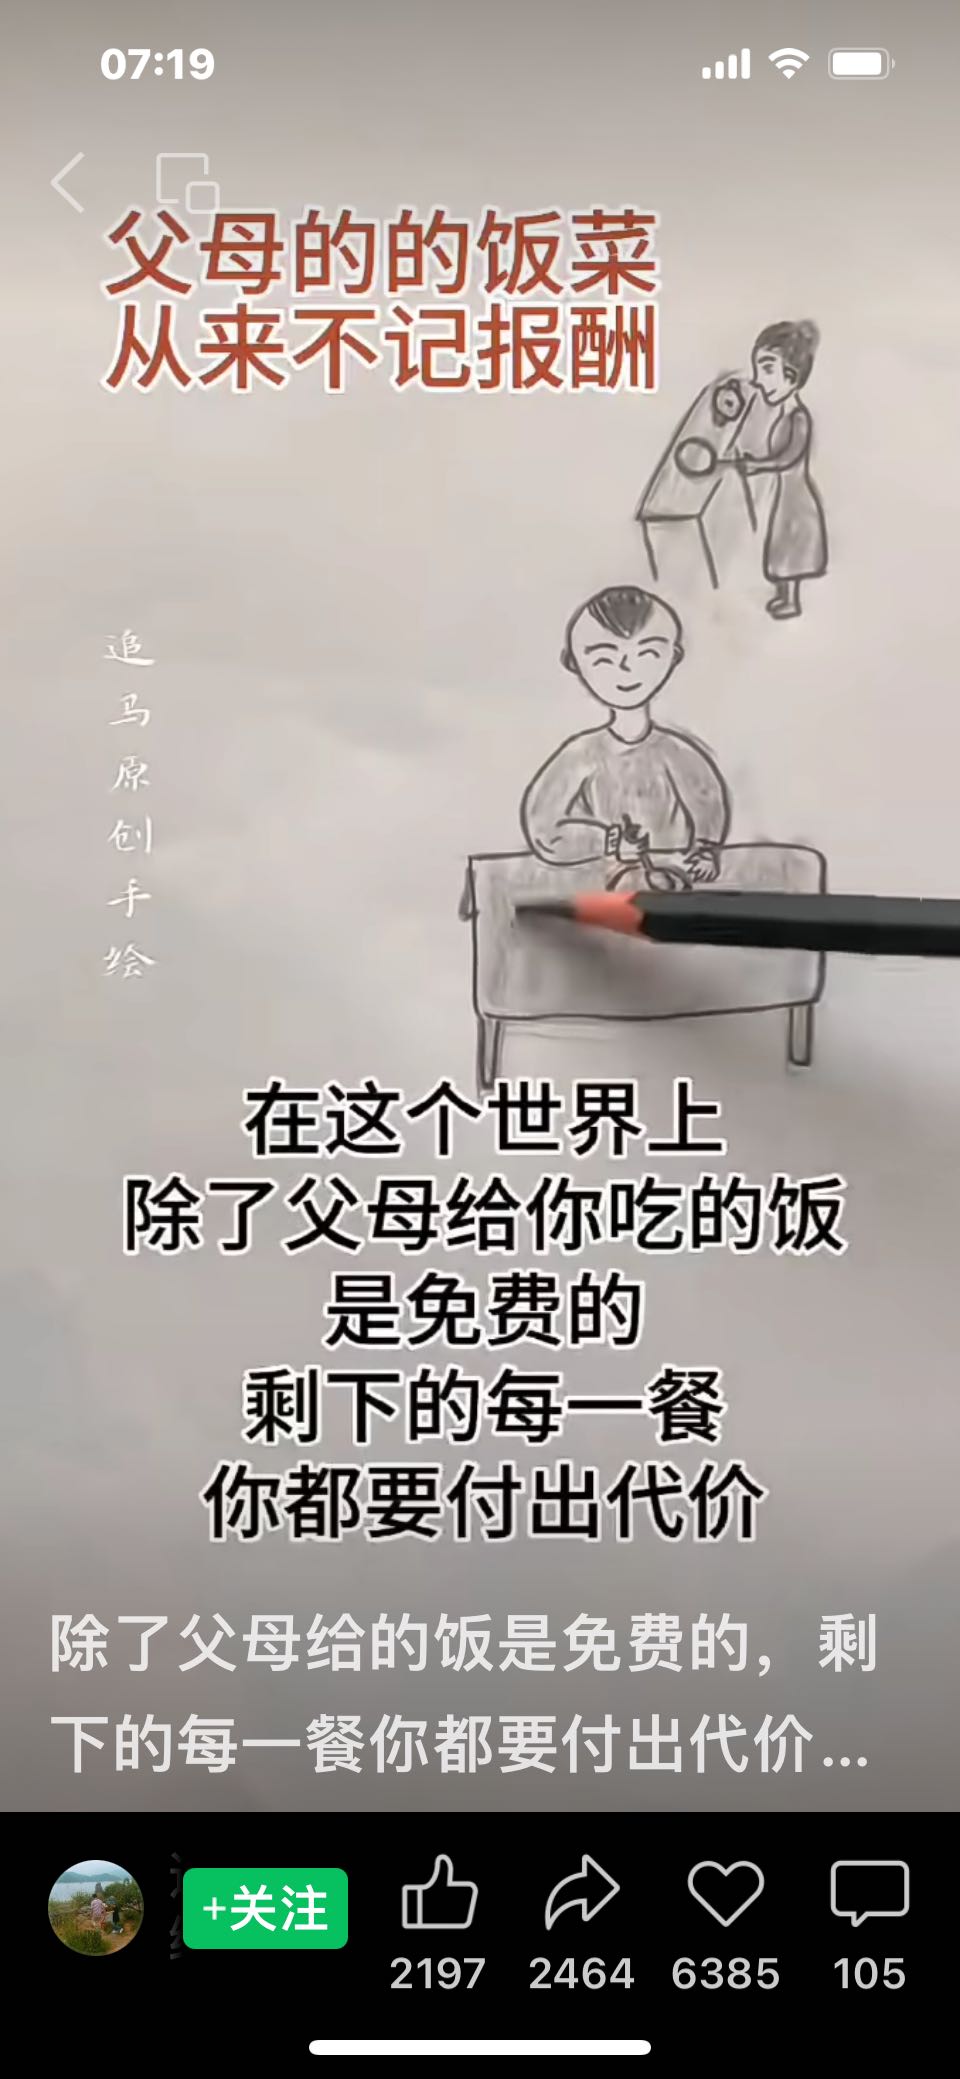 07:19
父母的的饭菜
从来不记报酬
追马原创手绘
在这个世界上
除了父母给你吃的饭
是免费的
剩下的每一餐
你都要付出代价
除了父母给的饭是免费的，剩
下的每一餐你都要付出代价...
+关注
2197
2464
6385
105